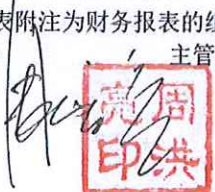 表附注为财务报表的组
主管
周洪
亮印